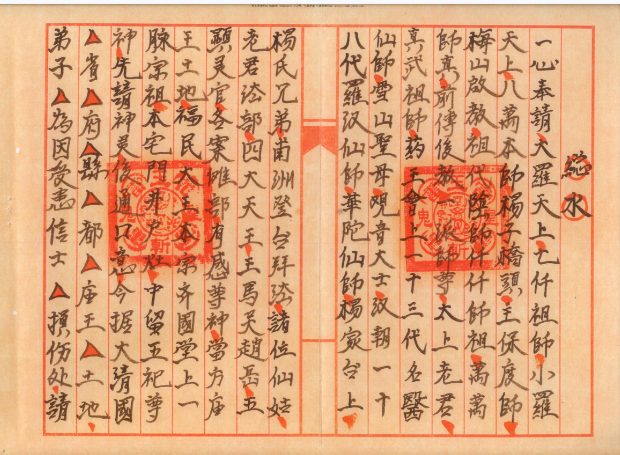 水
一心奉請大羅天上七仟祖師小羅
天上八萬本師楊子橋頭王保度師
梅山啟教祖代陰師仟仟師祖萬萬
師真前傳後教一派師尊太上老君
真武祖師葯王會上一十三代名醫
仙師雪山聖母观音大士汉朝一十
八代羅汉仙師華陀仙師楊家台上
楊氏兄弟甫洲登台拜法諸位仙姑
老君法部四大天王王馬吳趙岳五
顯灵官各案雄部有感尊神當方庙
王土地福民大王本宗齐國堂上一
脉宗祖本宅門井户灶中留五祀尊
神先請神灵後通口意今据大清國
▲省▲府▲縣▲都▲庙王▲土地
弟子▲為因患信士▲損伤处請